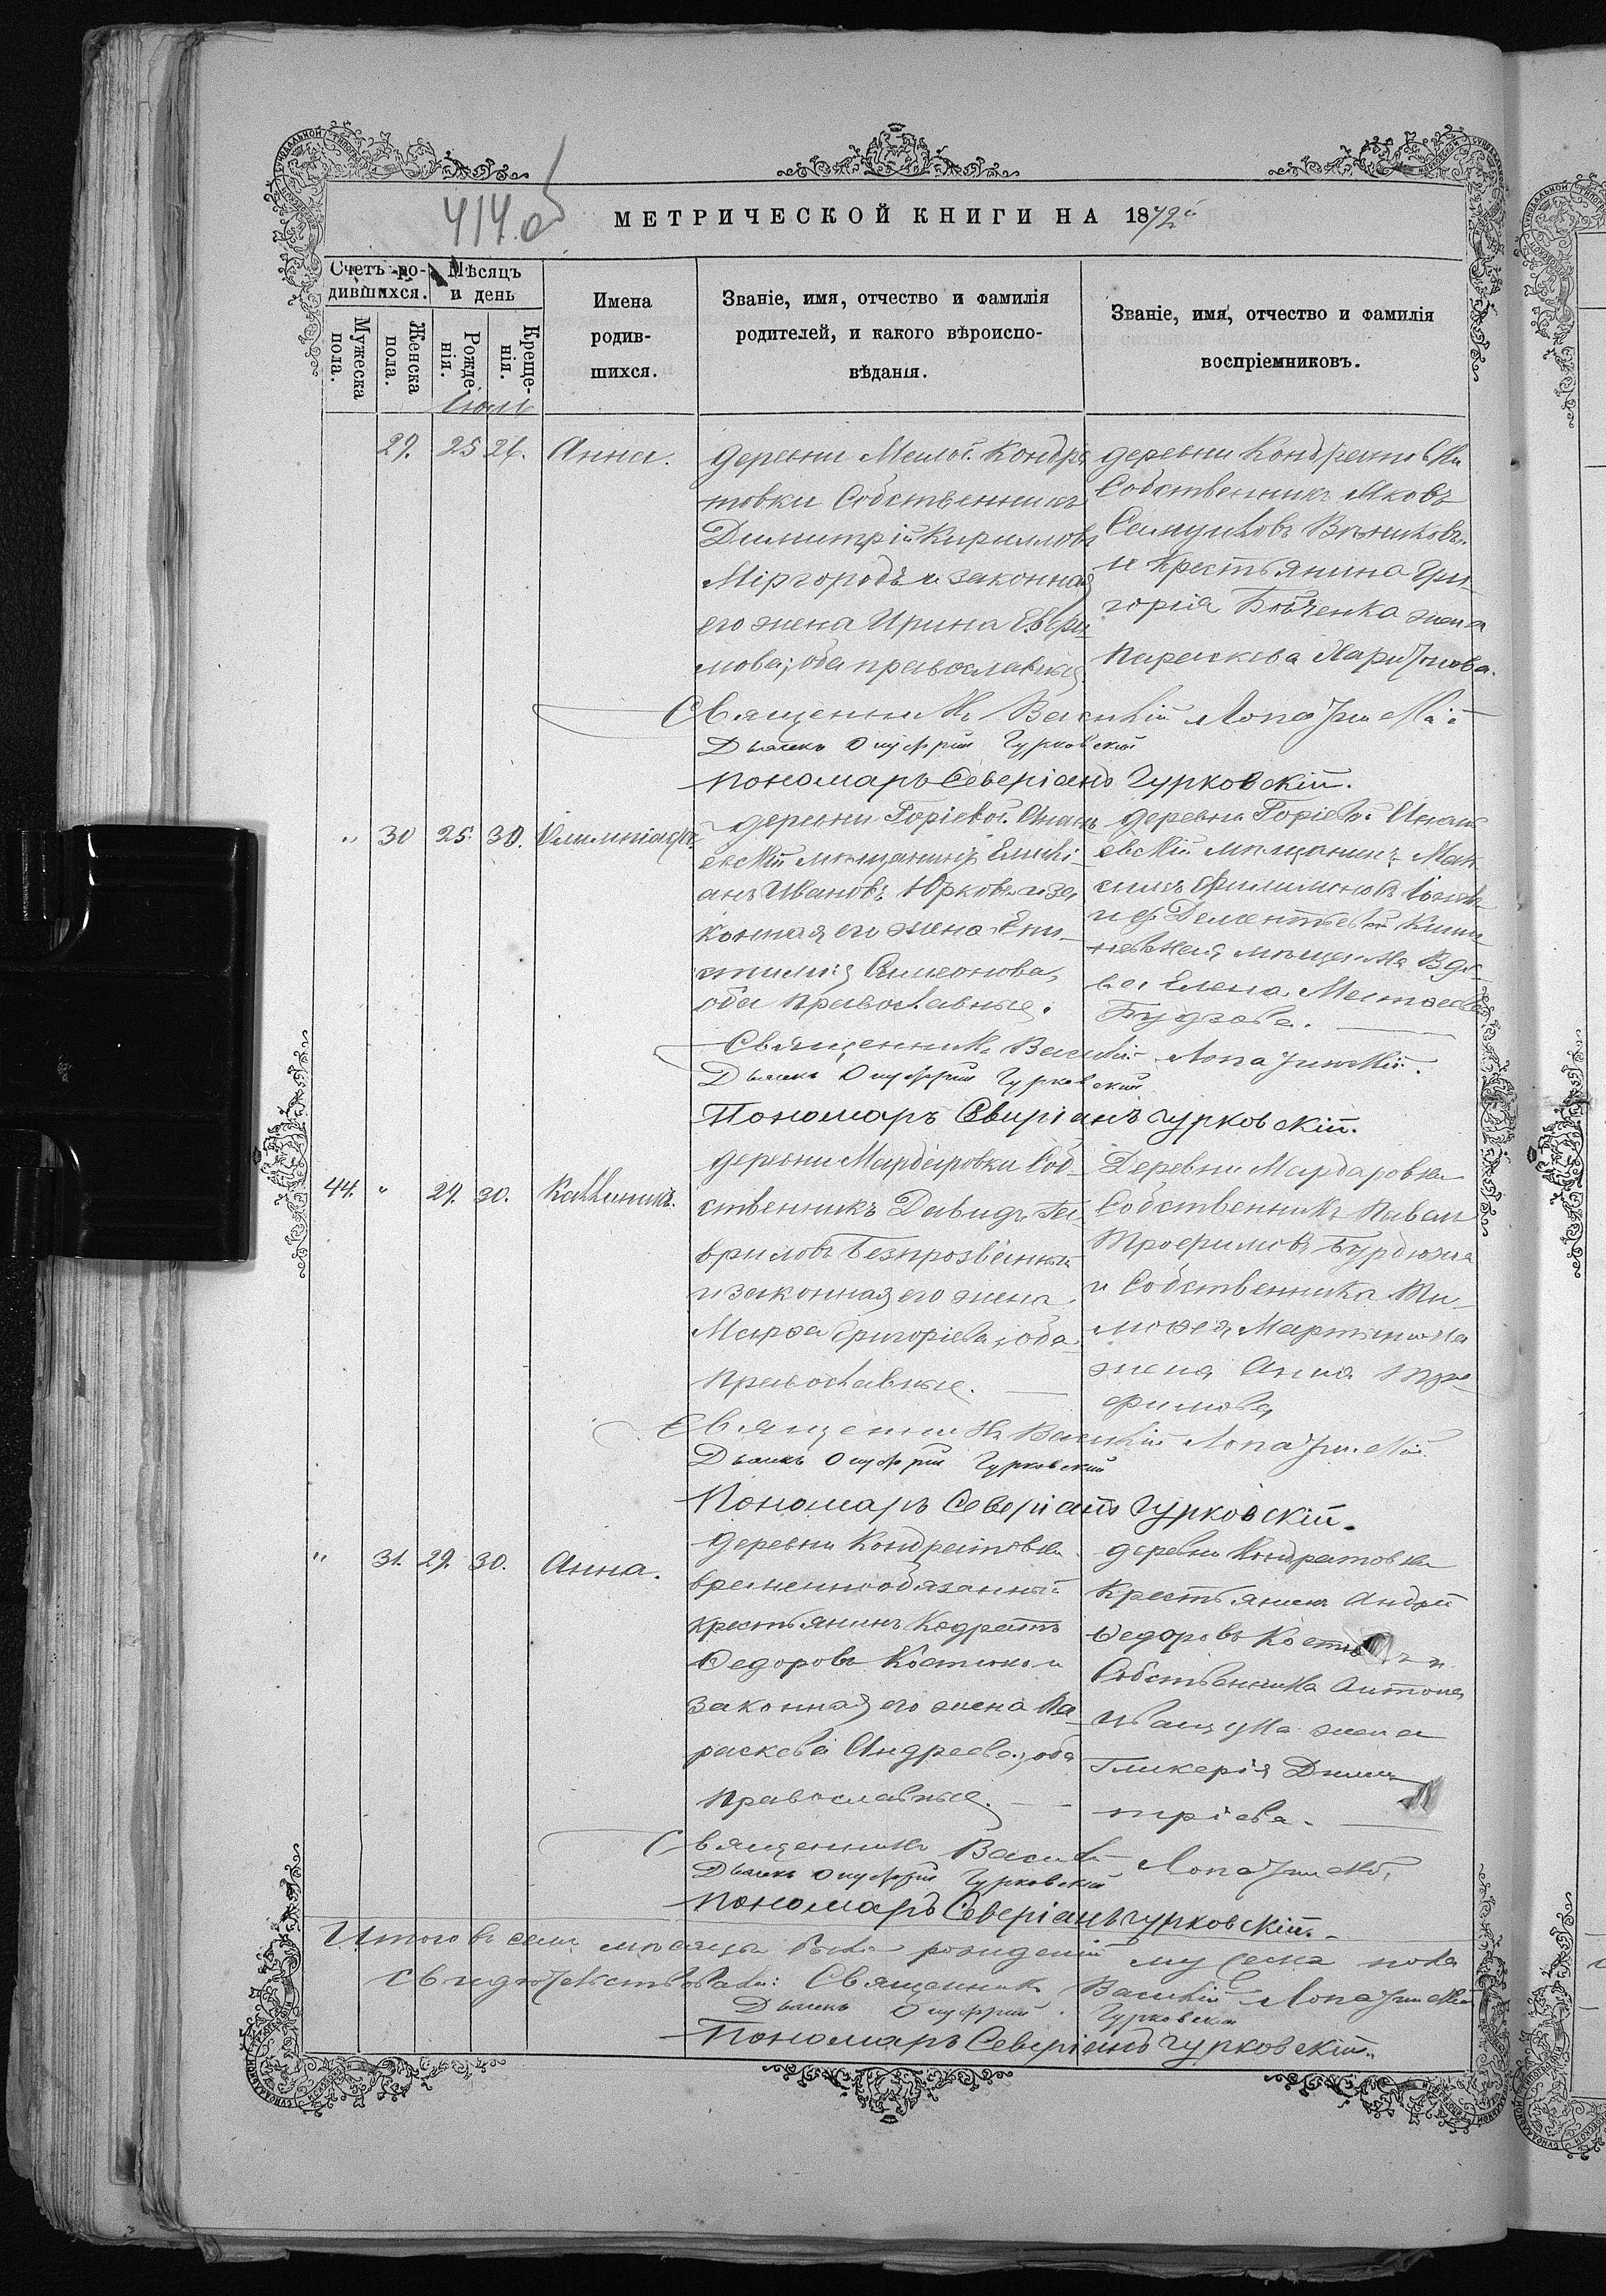 414 об
МЕТРИЧЕСКОЙ КНИГИ НА 1872й
Счетъ ро-
дившихся.
Мѣсяцъ
и день
Мужеска
пола.
Женска
пола.
Рожде-
нія.
Креще-
нія.
Имена
родив-
шихся.
Званіе, имя, отчество и фамилія
родителей, и какого вѣроиспо-
вѣданія.
Званіе, имя, отчество и фамилія
воспріемниковъ.
Іюль
29. 25 26. Анна.
деревни Малой Кондра
товки Собственникъ
Димитрій Кирилловъ
Міргородъ и законная
его жена Ирина Евфи-
мова, оба православныя
деревни Кондратовки
Собственникъ Яковъ
Самуиловъ
и Крестьянина Гри-
горія Бойченка жена
Параскева Харитонова.
Священникъ Василій Лопатинскій
Дьячекъ Онуфрій Гурковскій
Пономарь Северіанъ Гурковскій.
" 30 25. 30. Олимпіада
деревни Горіевой Анань
евскій мѣщанинъ Емилі
анъ Ивановъ Юрковъ и за
конная его жена Епи-
стимія Симеонова,
оба православные.
деревни Горіевой Анань
евскій мѣщанинъ Мак
симъ Филимоновъ
и Дементьевой Киши
невская мѣщанка Вдо-
ва Елена Матвеева
Священникъ Василій Лопатинскій.
Дьячекъ Онуфрій Гурковскій
Пономарь Свиріанъ Гурковскій.
44. " 29. 30. Каллиникъ.
деревни Мардаровки Соб-
ственникъ Давидъ Га-
вриловъ Безпрозванный
и законная его жена
Марфа Григоріева, оба
Православные.
Деревни Мардаровки
Собственникъ Павелъ
Трофимовъ Бурдюжа
и Собственника Ти-
мофея Мартынюка
жена Анна Тро-
фимова
Священникъ Василій Лопатинскій
Дьячекъ Онуфрій Гурковскій
Пономарь Северіанъ Гурковскій.
" 31. 29. 30. Анна.
деревни Кондратовки
временнообязанный
крестьянинъ Кодратъ
Ѳедоровъ Костюкъ и
законная его жена Па-
раскева Андреева, оба
Православные.
деревни Кондратовки
Крестьянинъ Андрей
Ѳедоровъ
Собственника Антона
Иващука жена
Гликерія Дими
тріева.
Священникъ Василій Лопатинскій,
Дьячекъ Онуфрій Гурковскій
Пономарь Северіанъ Гурковскій.
Итого въ семъ мѣсяцѣ было рожденій мужеска пола
Свидѣтельствовали: Священникъ Василій Лопатинскій
Дьячекъ Онуфрій Гурковскій
Пономарь Северіанъ Гурковскій.